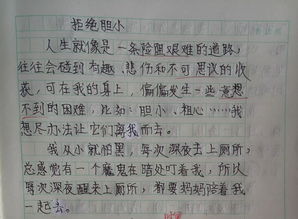 拒绝胆小
人生就像是一条险阻艰难的道路,
往往会碰到有趣、悲伤和不可思议的收
获,可在我的身上,偏偏发生一些意想
不到的困难,比如:胆小、粗心……我
想尽办法让它们离我而去。
我从小就怕黑,每次深夜去上厕所,
总感觉有一个魔鬼在暗处盯着我,所以
每次深夜醒来上厕所,都要妈妈陪着我
一起去。